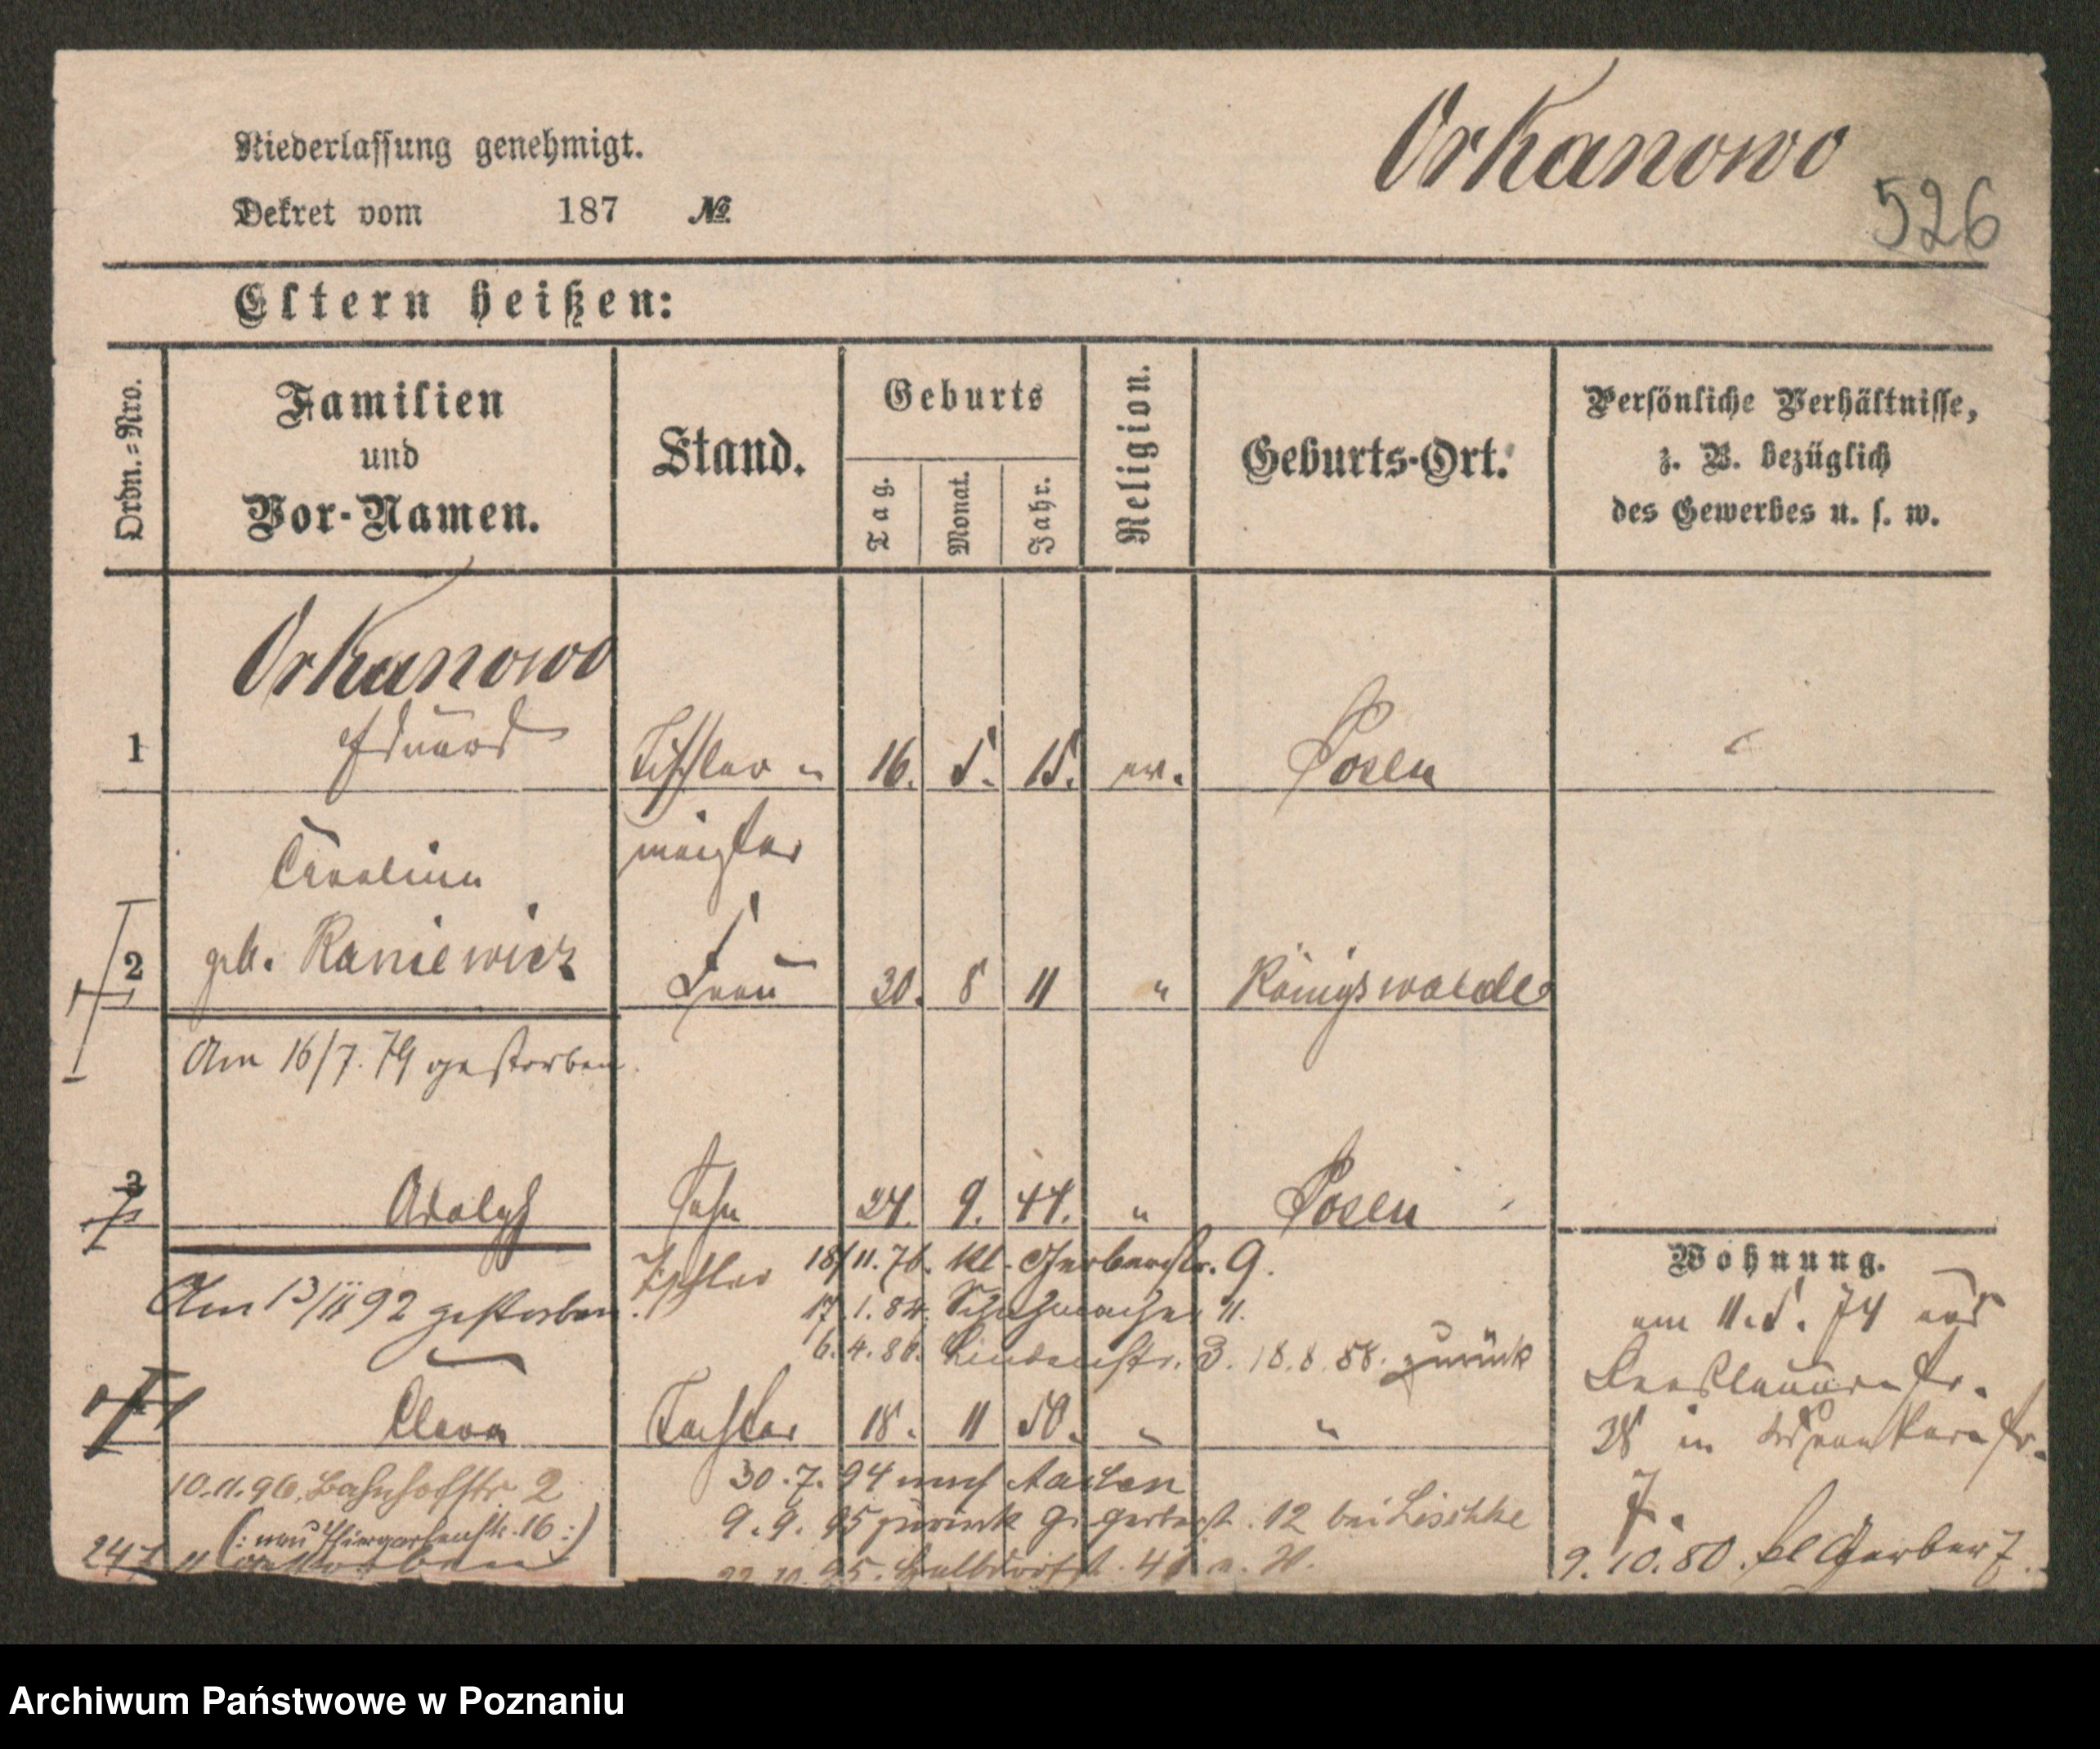 Orkanowo
Niederlassung genehmigt.
Dekret vom 187 №
526
Eltern heißen:
Ordn.=Nro.
Familien
und
Vor-Namen.
Stand.
Geburts
Tag.
Monat.
Jahr.
Religion.
Geburts-Ort.
Persönliche Verhältnisse,
z. B. bezüglich
des Gewerbes u. s. w.
Orkanowo
1 Eduard Tischler 16. 5. 15. ev. Posen
meister
Caroline
2 geb. Raniewicz Frau 30. 8 11 " Königswalde
Am 16/7. 79 gestorben.
3 Adolph Sohn 24. 9. 44. " Posen
Tischler 18/11. 76. Kl. Gerberstr. 9.
Am 13/II 92 gestorben.
17.1.84. Schuhmacher 11.
6.4.86. Lindenstr. 3. 18.8.88. zurück
Clara Tochter 18. 11 50. " "
10.11.96. Bahnhofstr 2
(: neu Thiergartenstr. 16 :)
gestorben
30.7.94 nach
9.9.95 zurück Gr Gerberst. 12 bei Lischke
22.10.95. Halbdorfst.
Wohnung.
am 11.5.74 aus
38 in
7.
9.10.80. kl Gerber 7.
Archiwum Państwowe w Poznaniu